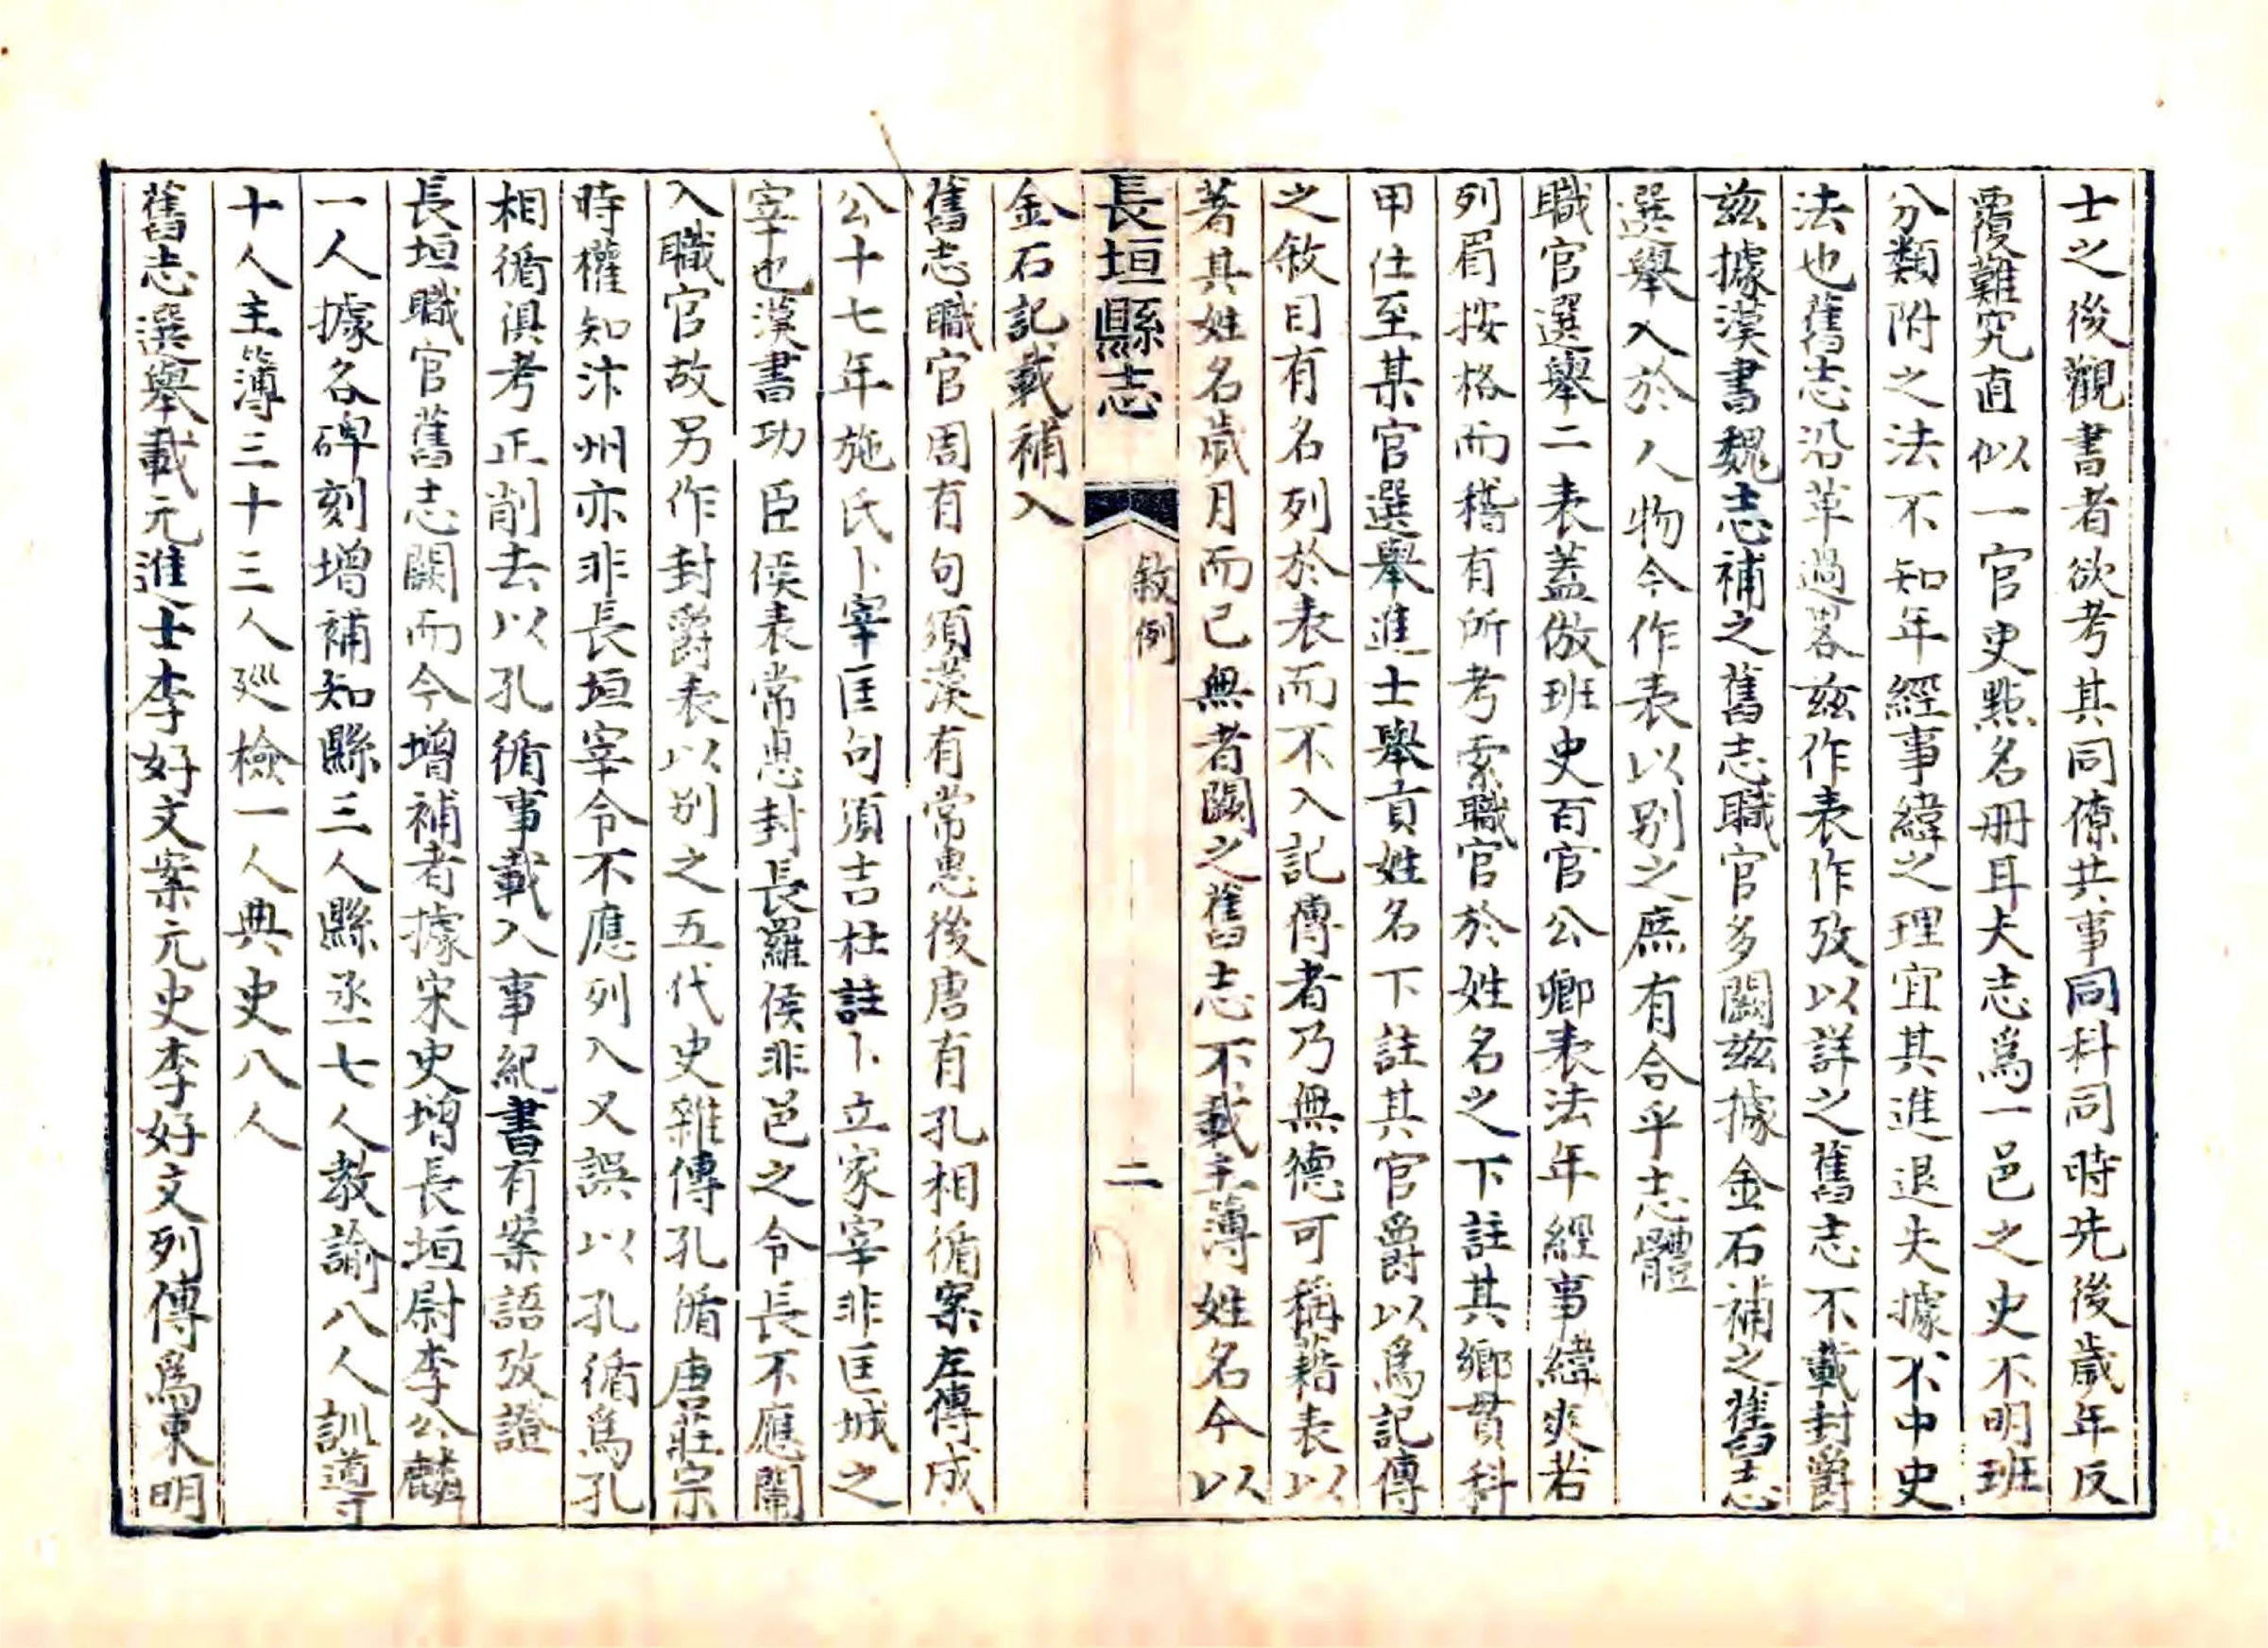 士之後觀書者欲考其同僚共事同科同時先後歲年反
覆難究直似一官吏點名册耳夫志爲一邑之史不明班
分類附之法不知年經事緯之理宜其進退失據不中史
法也舊志沿革過畧兹作表作攷以詳之舊志不載封爵
兹據漢書魏志補之舊志職官多闕兹據金石補之舊志
選舉入於人物今作表以别之庶有合乎志體
職官選舉二表蓋倣班史百官公卿表法年經事緯爽若
列眉按格而稽有所考索職官於姓名之下註其鄉貫科
甲仕至某官選舉進士舉貢姓名下註其官爵以爲記傳
之敘目有名列於表而不入記傳者乃無德可稱藉表以
著其姓名歲月而已無者闕之舊志不載主簿姓名今以
長垣縣志
敘例
二
金石記載補入
舊志職官周有句須漢有常惠後唐有孔相循案左傳成
公十七年施氏卜宰匡句須吉杜註卜立家宰非匡城之
宰也漢書功臣侯表常惠封長羅侯非邑之令長不應闌
入職官故另作封爵表以别之五代史雜傳孔循唐莊宗
時權知汴州亦非長垣宰令不應列入又誤以孔循爲孔
相循俱考正削去以孔循事載入事紀書有案語攷證
長垣職官舊志闕而今增補者據宋史增長垣尉李公麟
一人據各碑刻增補知縣三人縣丞七人教諭八人訓導
十人主簿三十三人巡檢一人典史八人
舊志選舉載元進士李好文案元史李好文列傳爲東明